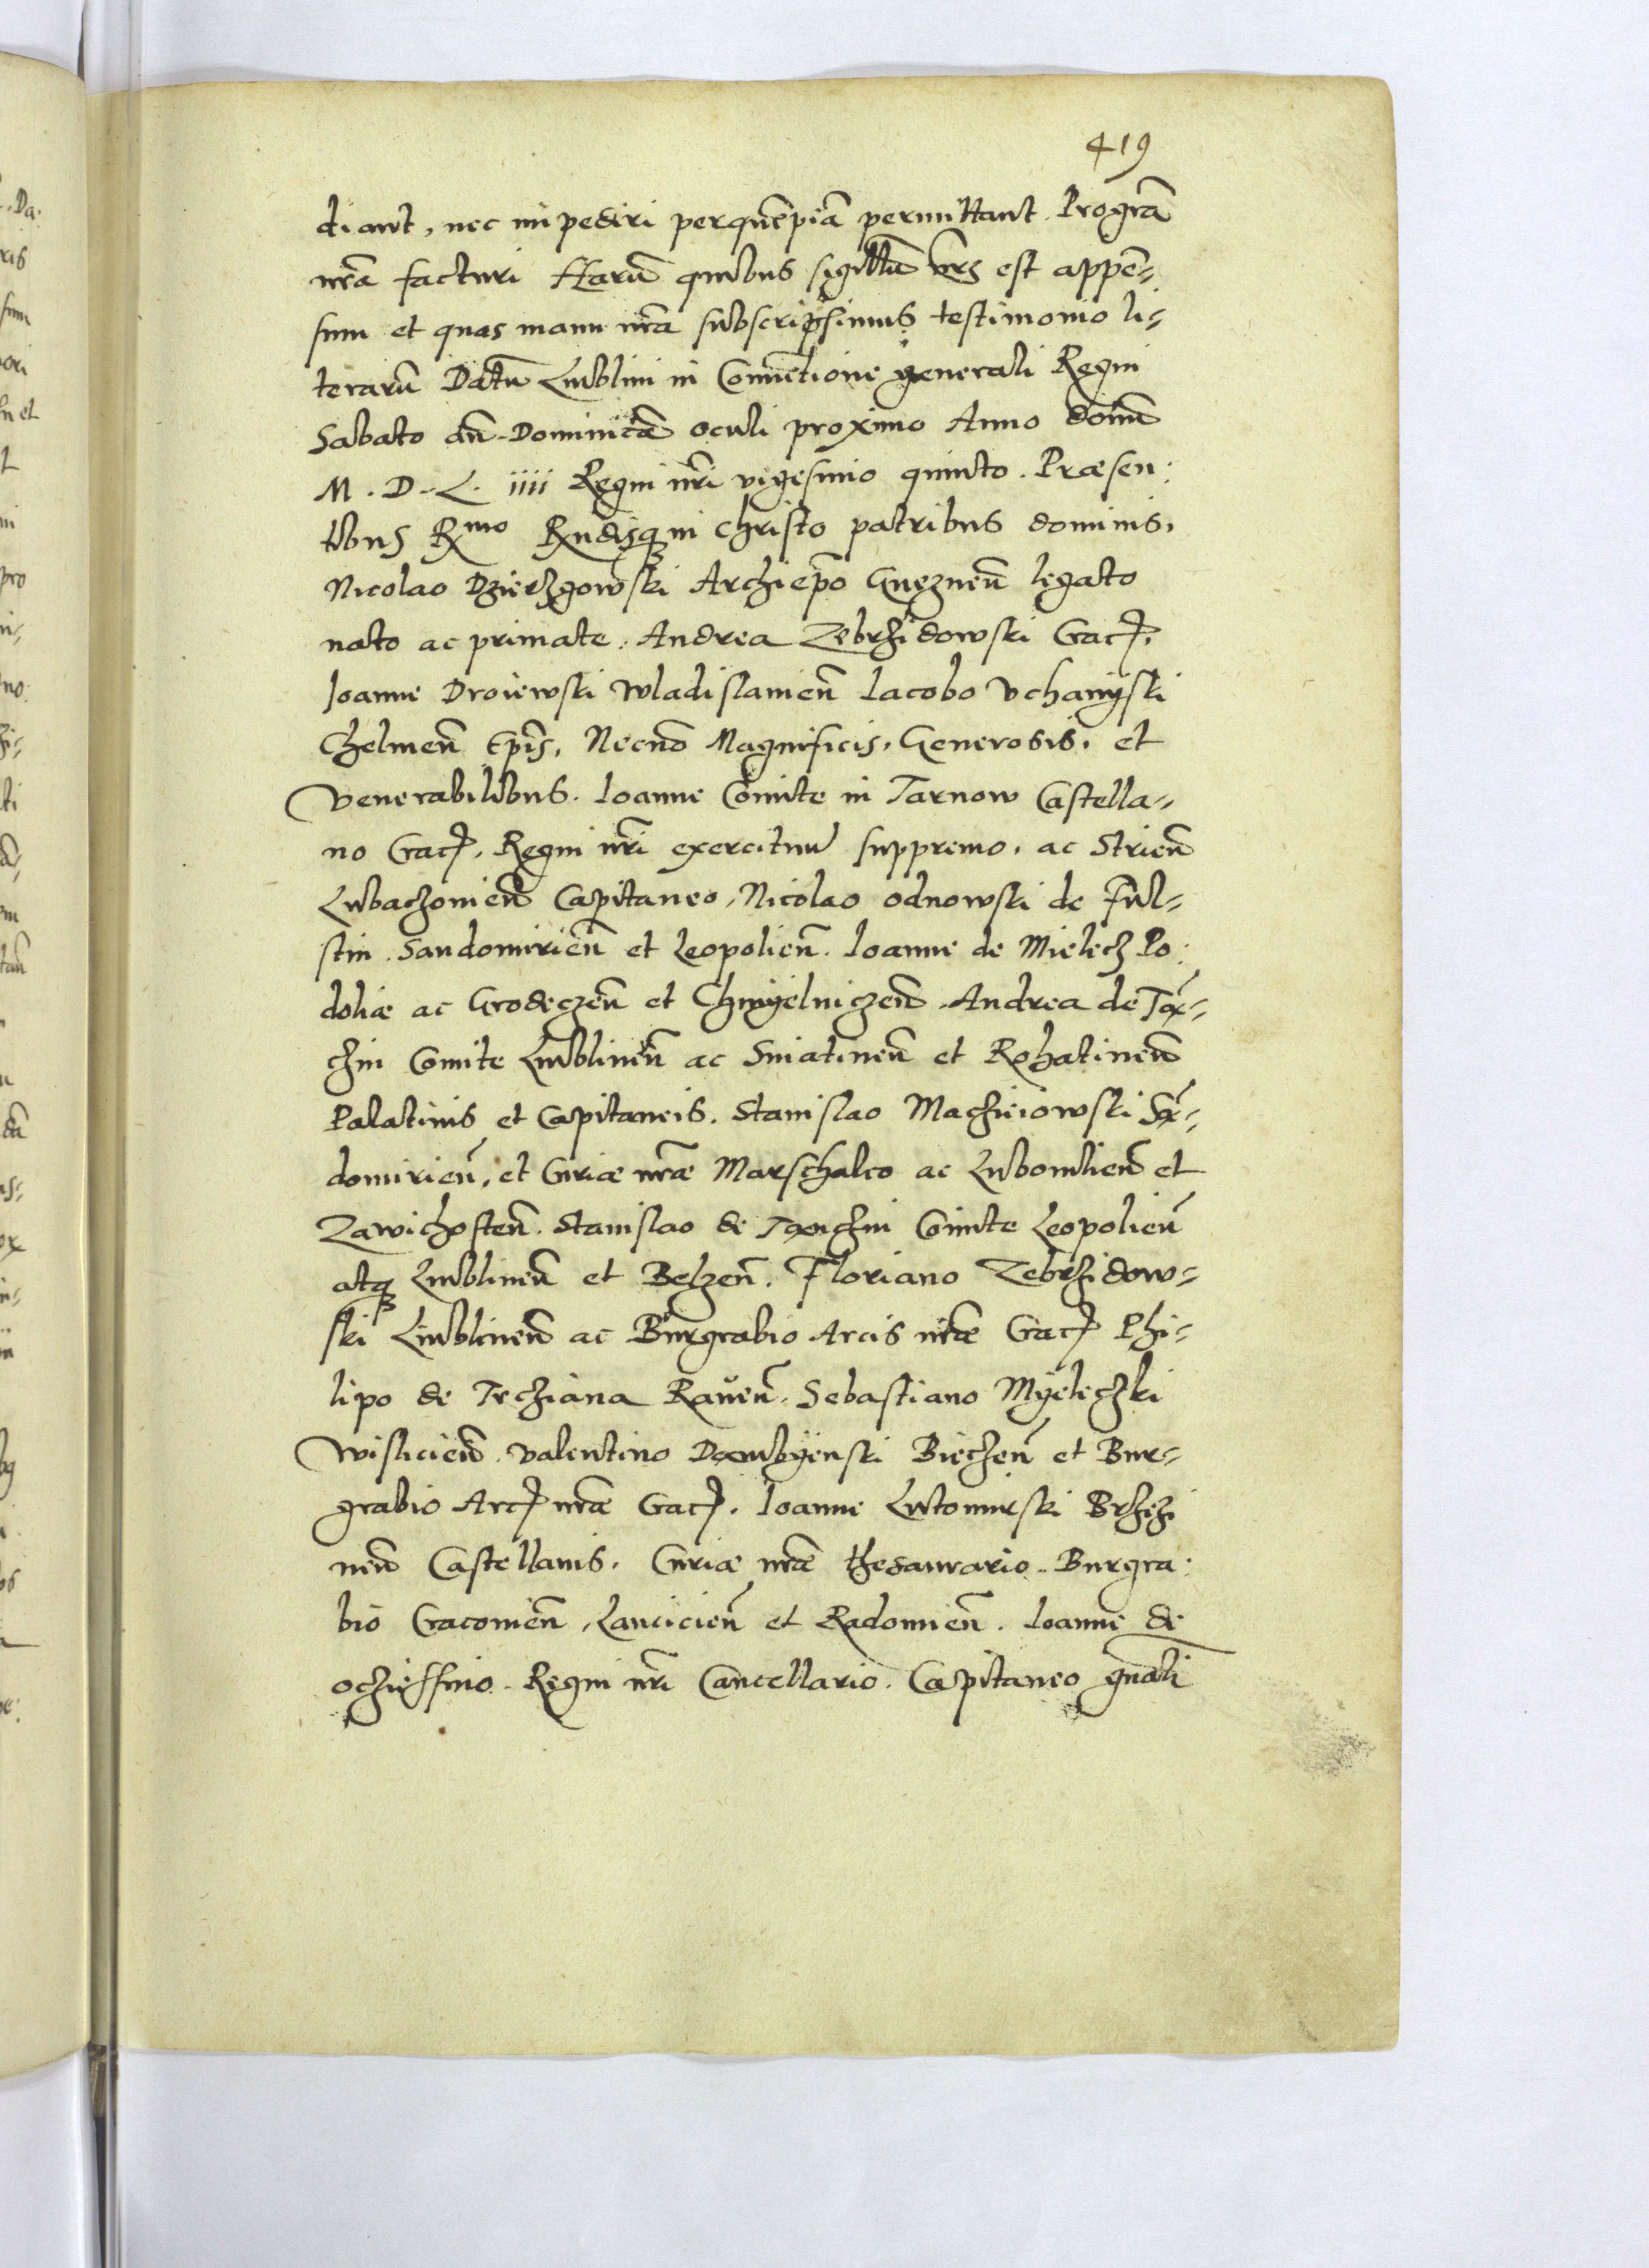 419
diant, nec impediri perquēpiā permittant. Progrā
nrā facturi Harū quibus sigillū nrs est appē-
sum et quas manu nrā subscripsimus testimonio li-
terarū Datū Lublini in Conuētione generali Regni
Sabato añ Dominicā oculi proximo Anno domī
M. D. L. iiii Regni nri vigesimo quinto. Præsen:
tibus Rmo Rndisq in Christo patribus dominis,
Nicolao Dzierzgowski Archiepo Gneznen legato
nato ac primate. Andrea Zebrzidowski Crac.
Ioanne Droiewski Wladislauien Iacobo Vchanyski
Chelmen Epis, Necno Magnificis, Generosis, et
Venerabilibus. Ioanne Comite in Tarnow Castella-
no Crac, Regni nri exercituū suppremo, ac Strien
Lubaczouien Capitaneo, Nicolao odnowski de Ful-
stin Sandomirien et Leopolien. Ioanne de Mielecz Po:
doliæ ac Grodeczen et Chmyelniczen Andrea de Tāx-
czin Comite Lublinen ac Sniatinen et Rohatinen
Palatinis et Capitaneis. Stanislao Macziciowski Sā-
domirien, et Curiæ nræ Marschalco ac Lubomlien et
Zawichosten. Stanislao de Taxnczin Comite Leopolien
atq Lublinen et Belzen. Floriano Zebrzidow-
ski Lublinen ac Burgrabio Arcis nræ Crac Phi-
lipo de Trcziana Rauen. Sebastiano Myeleczki
Wislicien. Valentino Dambyenski Bieczen et Bur-
grabio Arc nræ Crac. Ioanne Lutomirski Brzezi
nen Castellanis. Curiæ nræ thesaurario. Burgra:
bio Cracouien, Lancicien et Radomien. Ioanne de
oczieszino. Regni nri Cancellario. Capitaneo gnali